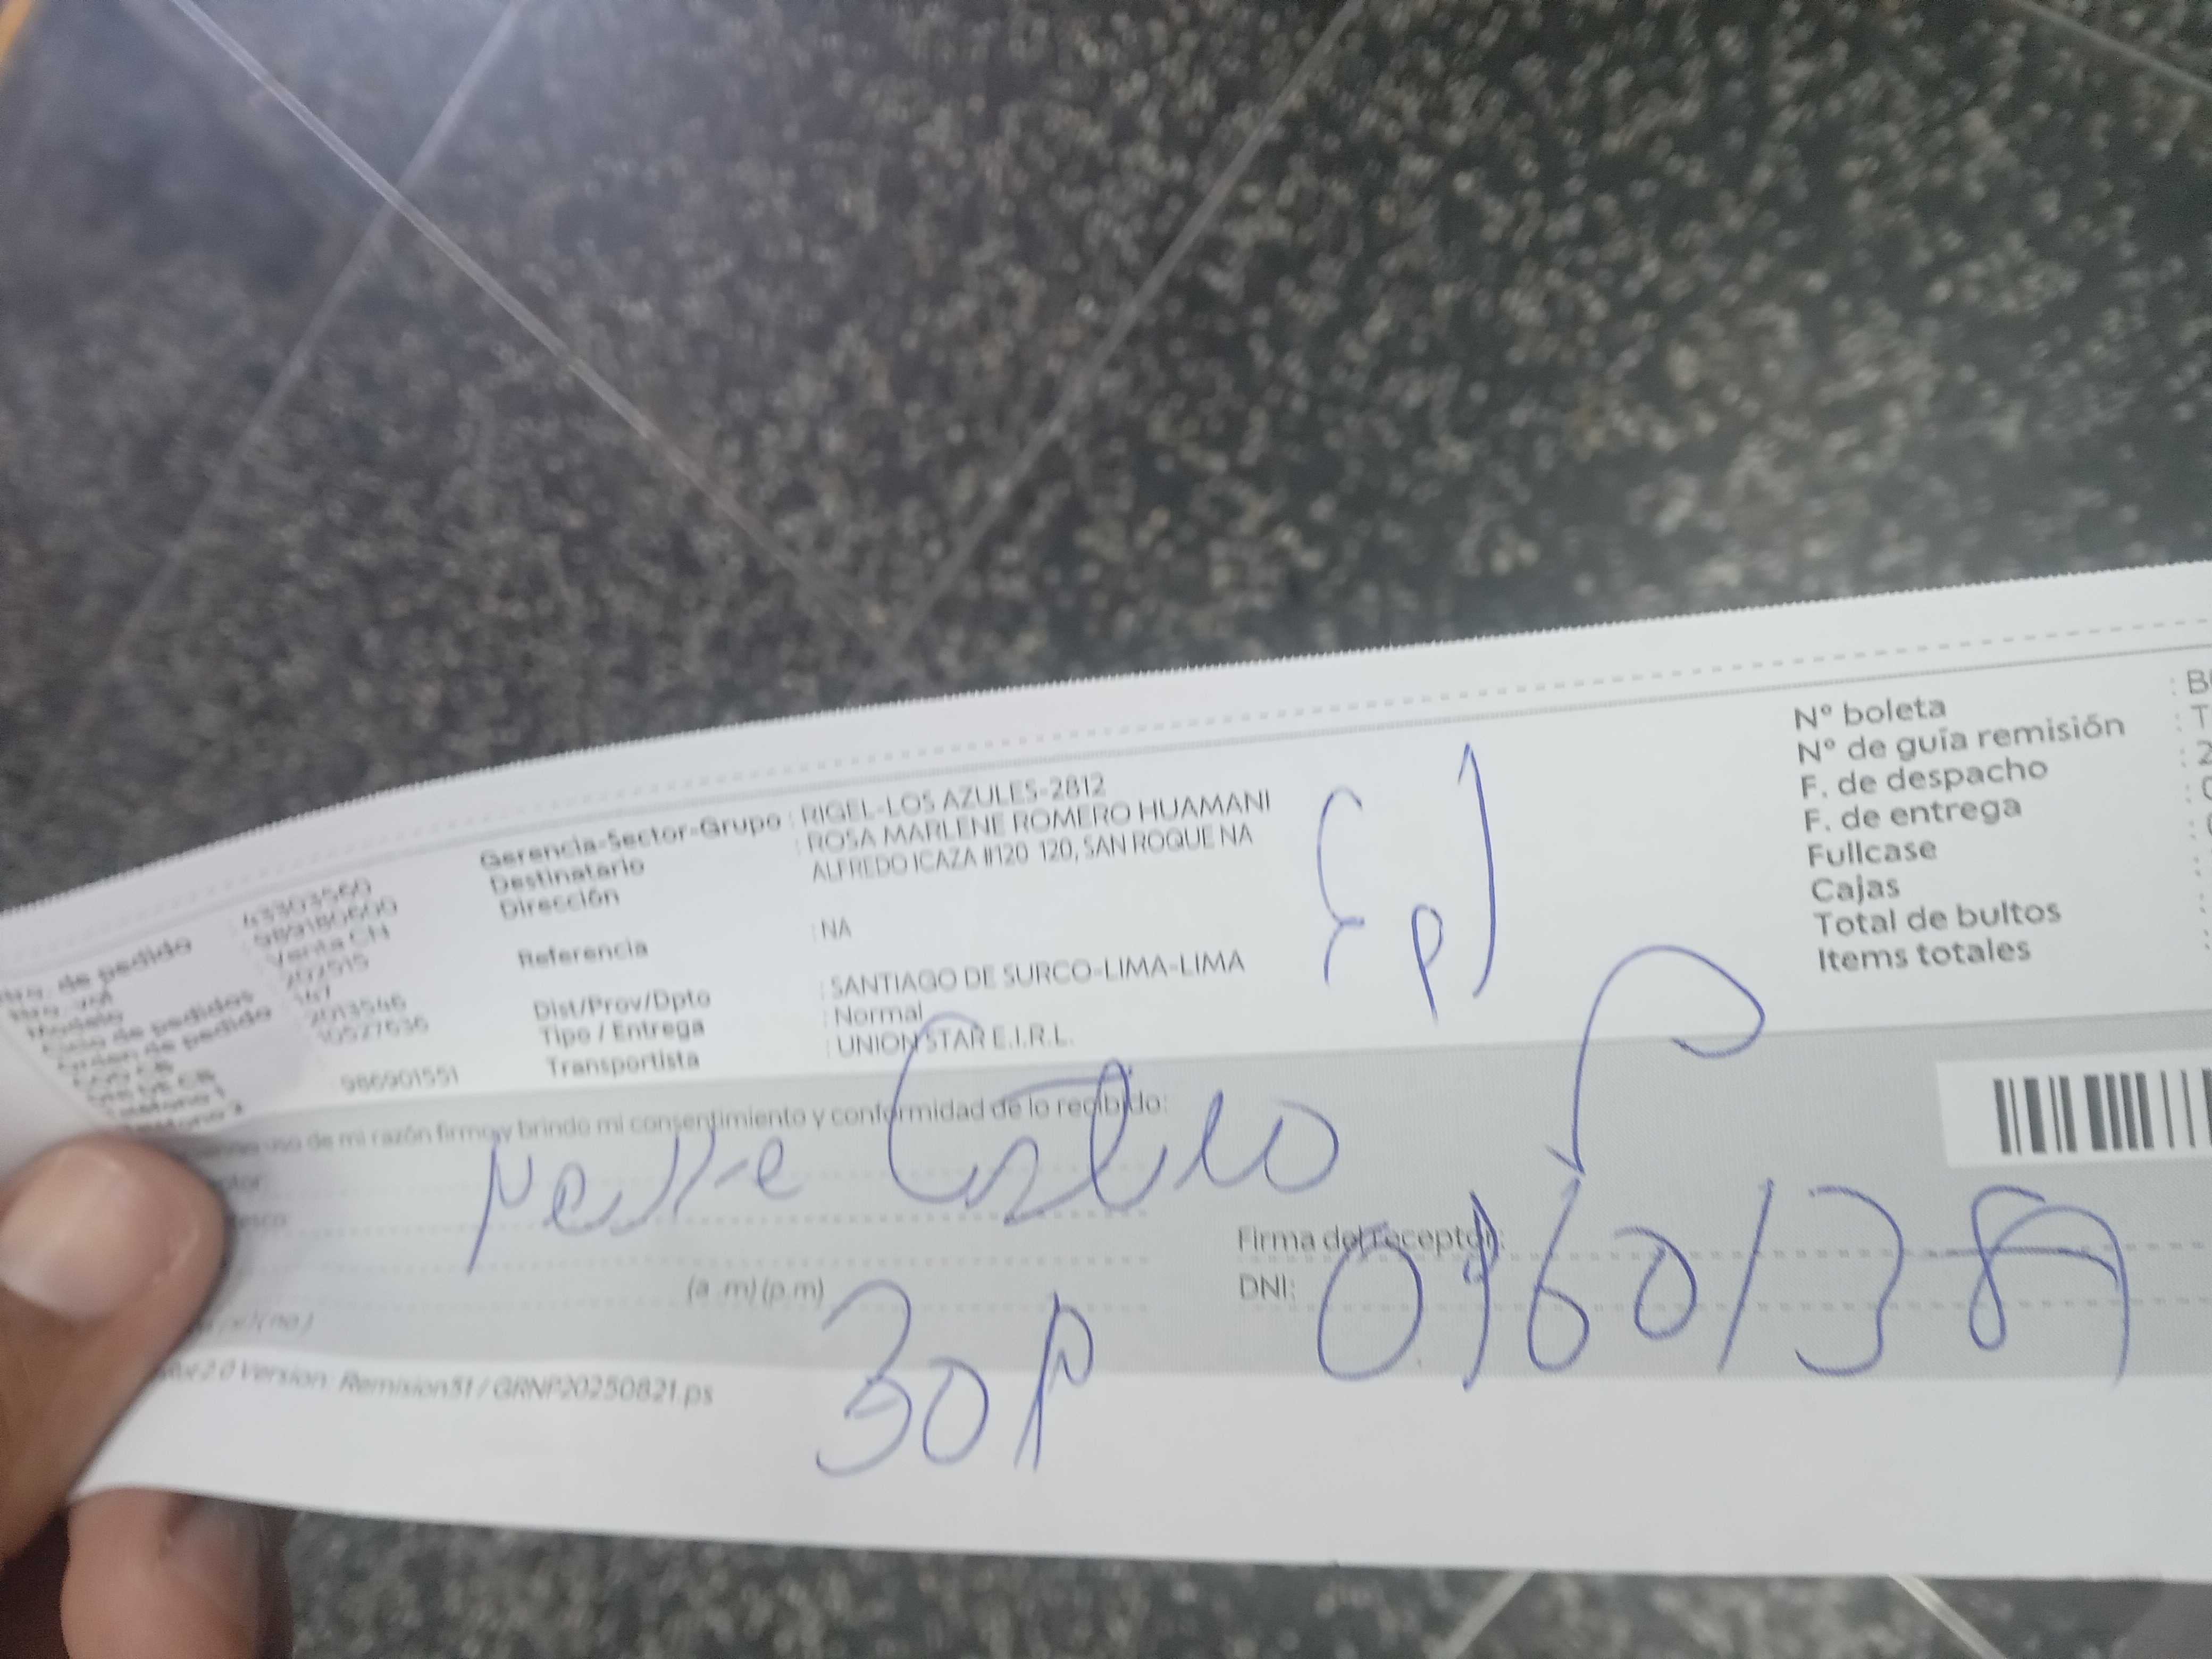 Nro. de pedido : 43303560
: 989180600
Modelo : Venta CN
Ciclo de pedidos : 202515
Orden de pedido : 147
2013546
10527636
Teléfono 1
Teléfono 2 986901551
Gerencia-Sector-Grupo : RIGEL-LOS AZULES-2812
Destinatario : ROSA MARLENE ROMERO HUAMANI
Dirección ALFREDO ICAZA #120 120, SAN ROQUE NA
Referencia : NA
Dist/Prov/Dpto : SANTIAGO DE SURCO-LIMA-LIMA
Tipo / Entrega : Normal
Transportista : UNION STAR E.I.R.L.
N° boleta : B
N° de guía remisión : T
F. de despacho : 2
F. de entrega :
Fullcase :
Cajas :
Total de bultos :
Items totales :
uso de mi razón firmo y brindo mi consentimiento y conformidad de lo recibido:
Castro
Firma del receptor:
(a .m) (p.m)
DNI:
30 P
2.0 Version: Remision51 / GRNP20250821.ps